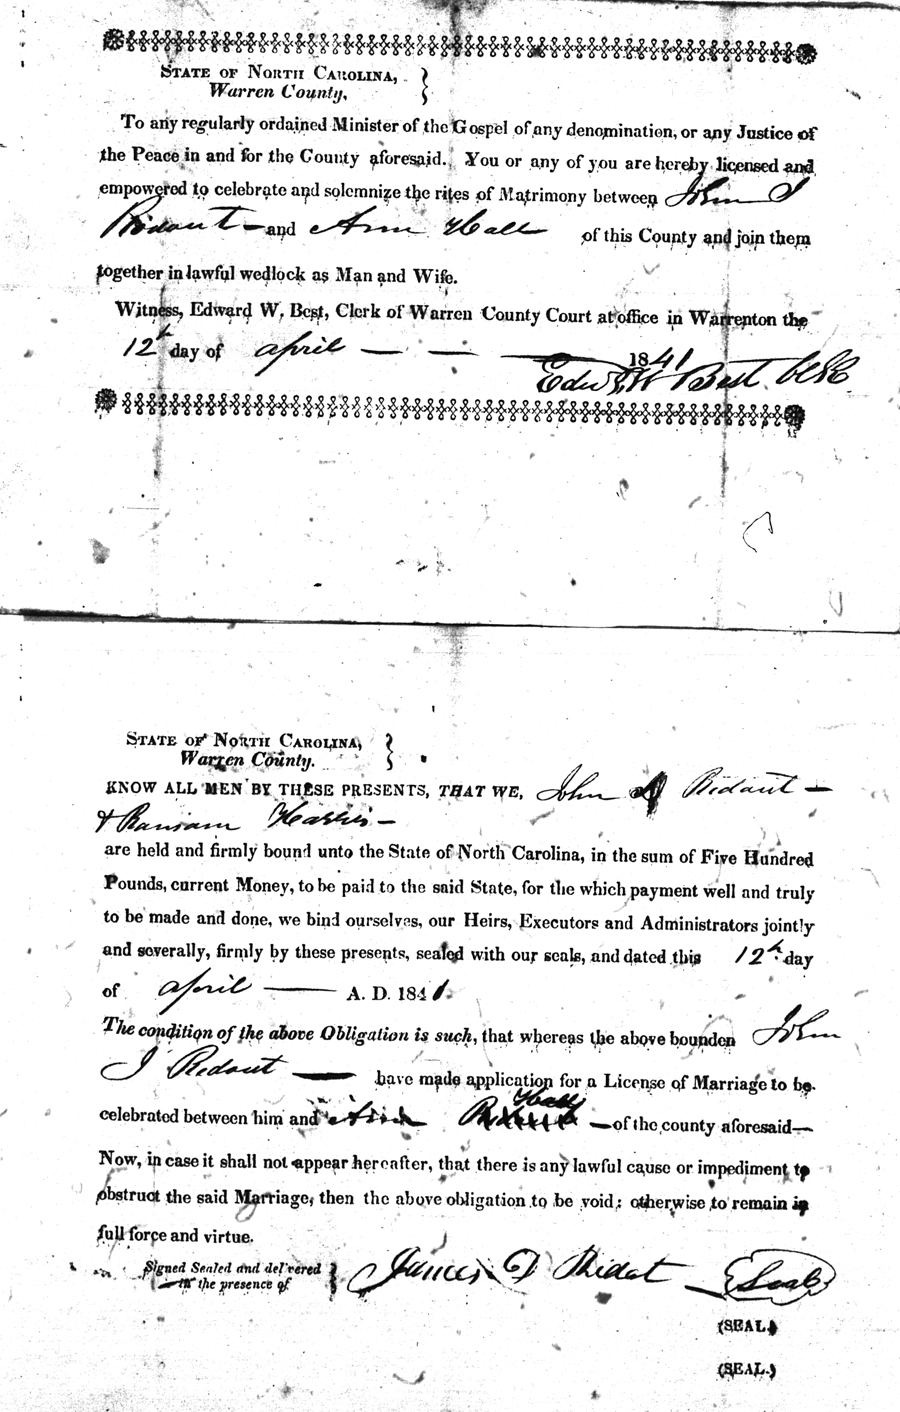 STATE OF NORTH CAROLINA,
Warren County,
To any regularly ordained Minister of the Gospel of any denomination, or any Justice of
the Peace in and for the County aforesaid. You or any of you are hereby licensed and
empowered to celebrate and solemnize the rites of Matrimony between John J
Ridout — and Ann Hall of this County and join them
together in lawful wedlock as Man and Wife.
Witness, Edward W. Best, Clerk of Warren County Court at office in Warrenton the
12th day of April — — — 1841
Edwd W Best Clk
STATE OF NORTH CAROLINA,
Warren County.
KNOW ALL MEN BY THESE PRESENTS, THAT WE, John Ridout —
& Ransom Harris —
are held and firmly bound unto the State of North Carolina, in the sum of Five Hundred
Pounds, current Money, to be paid to the said State, for the which payment well and truly
to be made and done, we bind ourselves, our Heirs, Executors and Administrators jointly
and severally, firmly by these presents, sealed with our seals, and dated this 12th day
of April — A. D. 1841.
The condition of the above Obligation is such, that whereas the above bounden John
J Ridout — have made application for a License of Marriage to be
celebrated between him and Ann Hall — of the county aforesaid—
Now, in case it shall not appear hereafter, that there is any lawful cause or impediment to
obstruct the said Marriage, then the above obligation to be void; otherwise to remain in
full force and virtue.
Signed Sealed and delivered
in the presence of
James D Ridout — Seal
(SEAL.)
(SEAL.)